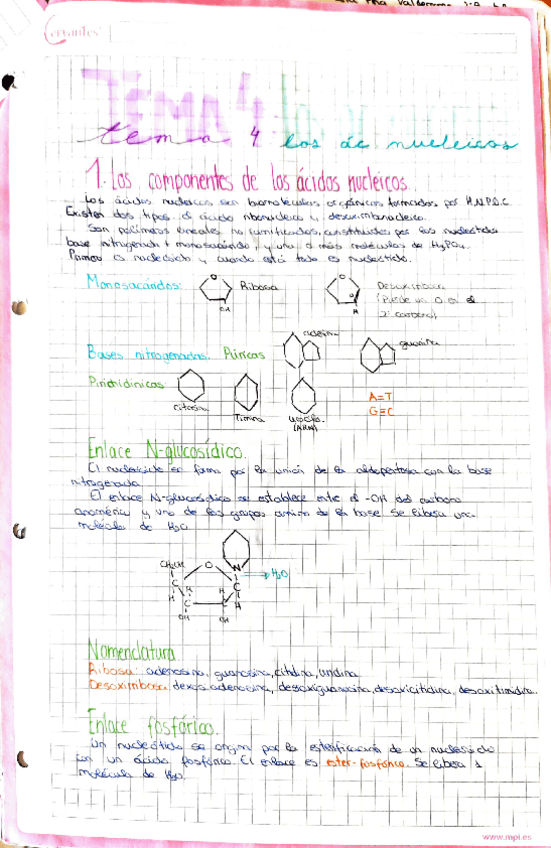 Cervantes
Tema 4: los
tema 4 los ác nucleicos
1. Los componentes de los ácidos nucleicos.
Los ácidos nucleicos son biomoléculas orgánicas formadas por H,N,P,O,C.
Existen dos tipos el ácido ribonucleico y desoxirribonucleico.
Son polímeros lineales no ramificados, constituidos por los nucleótidos
base nitrogenada + monosacárido, y una o más moléculas de H₃PO₄.
es nucleósido y cuando está todo es nucleótido.
Monosacáridos: Ribosa
OH
H
(Pierde un O en el
2' carbono)
Bases nitrogenadas. Púricas adenina guanina
Pirimidínicas
citosina Timina uracilo.
(ARN)
A=T
G≡C
Enlace N-glucosídico.
El nucleósido se forma por la unión de la aldopentosa con la base
nitrogenada.
El enlace N-glucosídico se establece entre el -OH del carbono
anomérico y uno de los grupos amino de la base. Se libera una
molécula de H₂O
CH₂OH O N → H₂O
C C
H H H H
C C
OH OH
Nomenclatura
Ribosa: adenosina, guanosina, citidina, uridina
Desoxirribosa: desoxiadenosina, desoxiguanosina, desoxicitidina, desoxitimidina.
Enlace fosfórico.
Un nucleótido se origina por la esterificación de un nucleósido
con un ácido fosfórico. El enlace es ester-fosfórico. Se libera 1
molécula de H₂O.
www.mpi.es